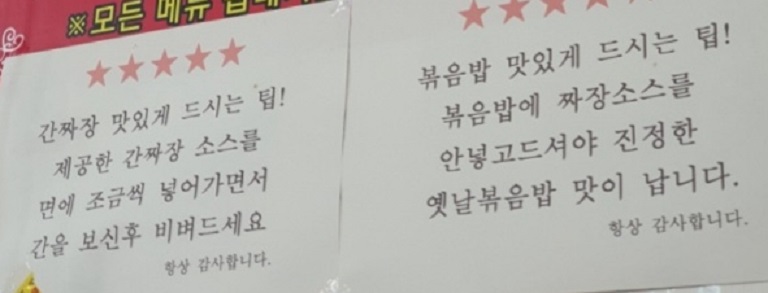 ※모든 메뉴
★★★★★
간짜장 맛있게 드시는 팁!
제공한 간짜장 소스를
면에 조금씩 넣어가면서
간을 보신후 비벼드세요
항상 감사합니다.
★★★★★
볶음밥 맛있게 드시는 팁!
볶음밥에 짜장소스를
안넣고드셔야 진정한
옛날볶음밥 맛이 납니다.
항상 감사합니다.